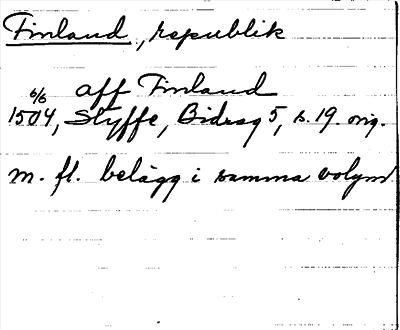 Finland, republik
aff Finland
6/6
1504, Styffe, Bidrag 5, s. 19. orig.
m. fl. belägg i samma volym